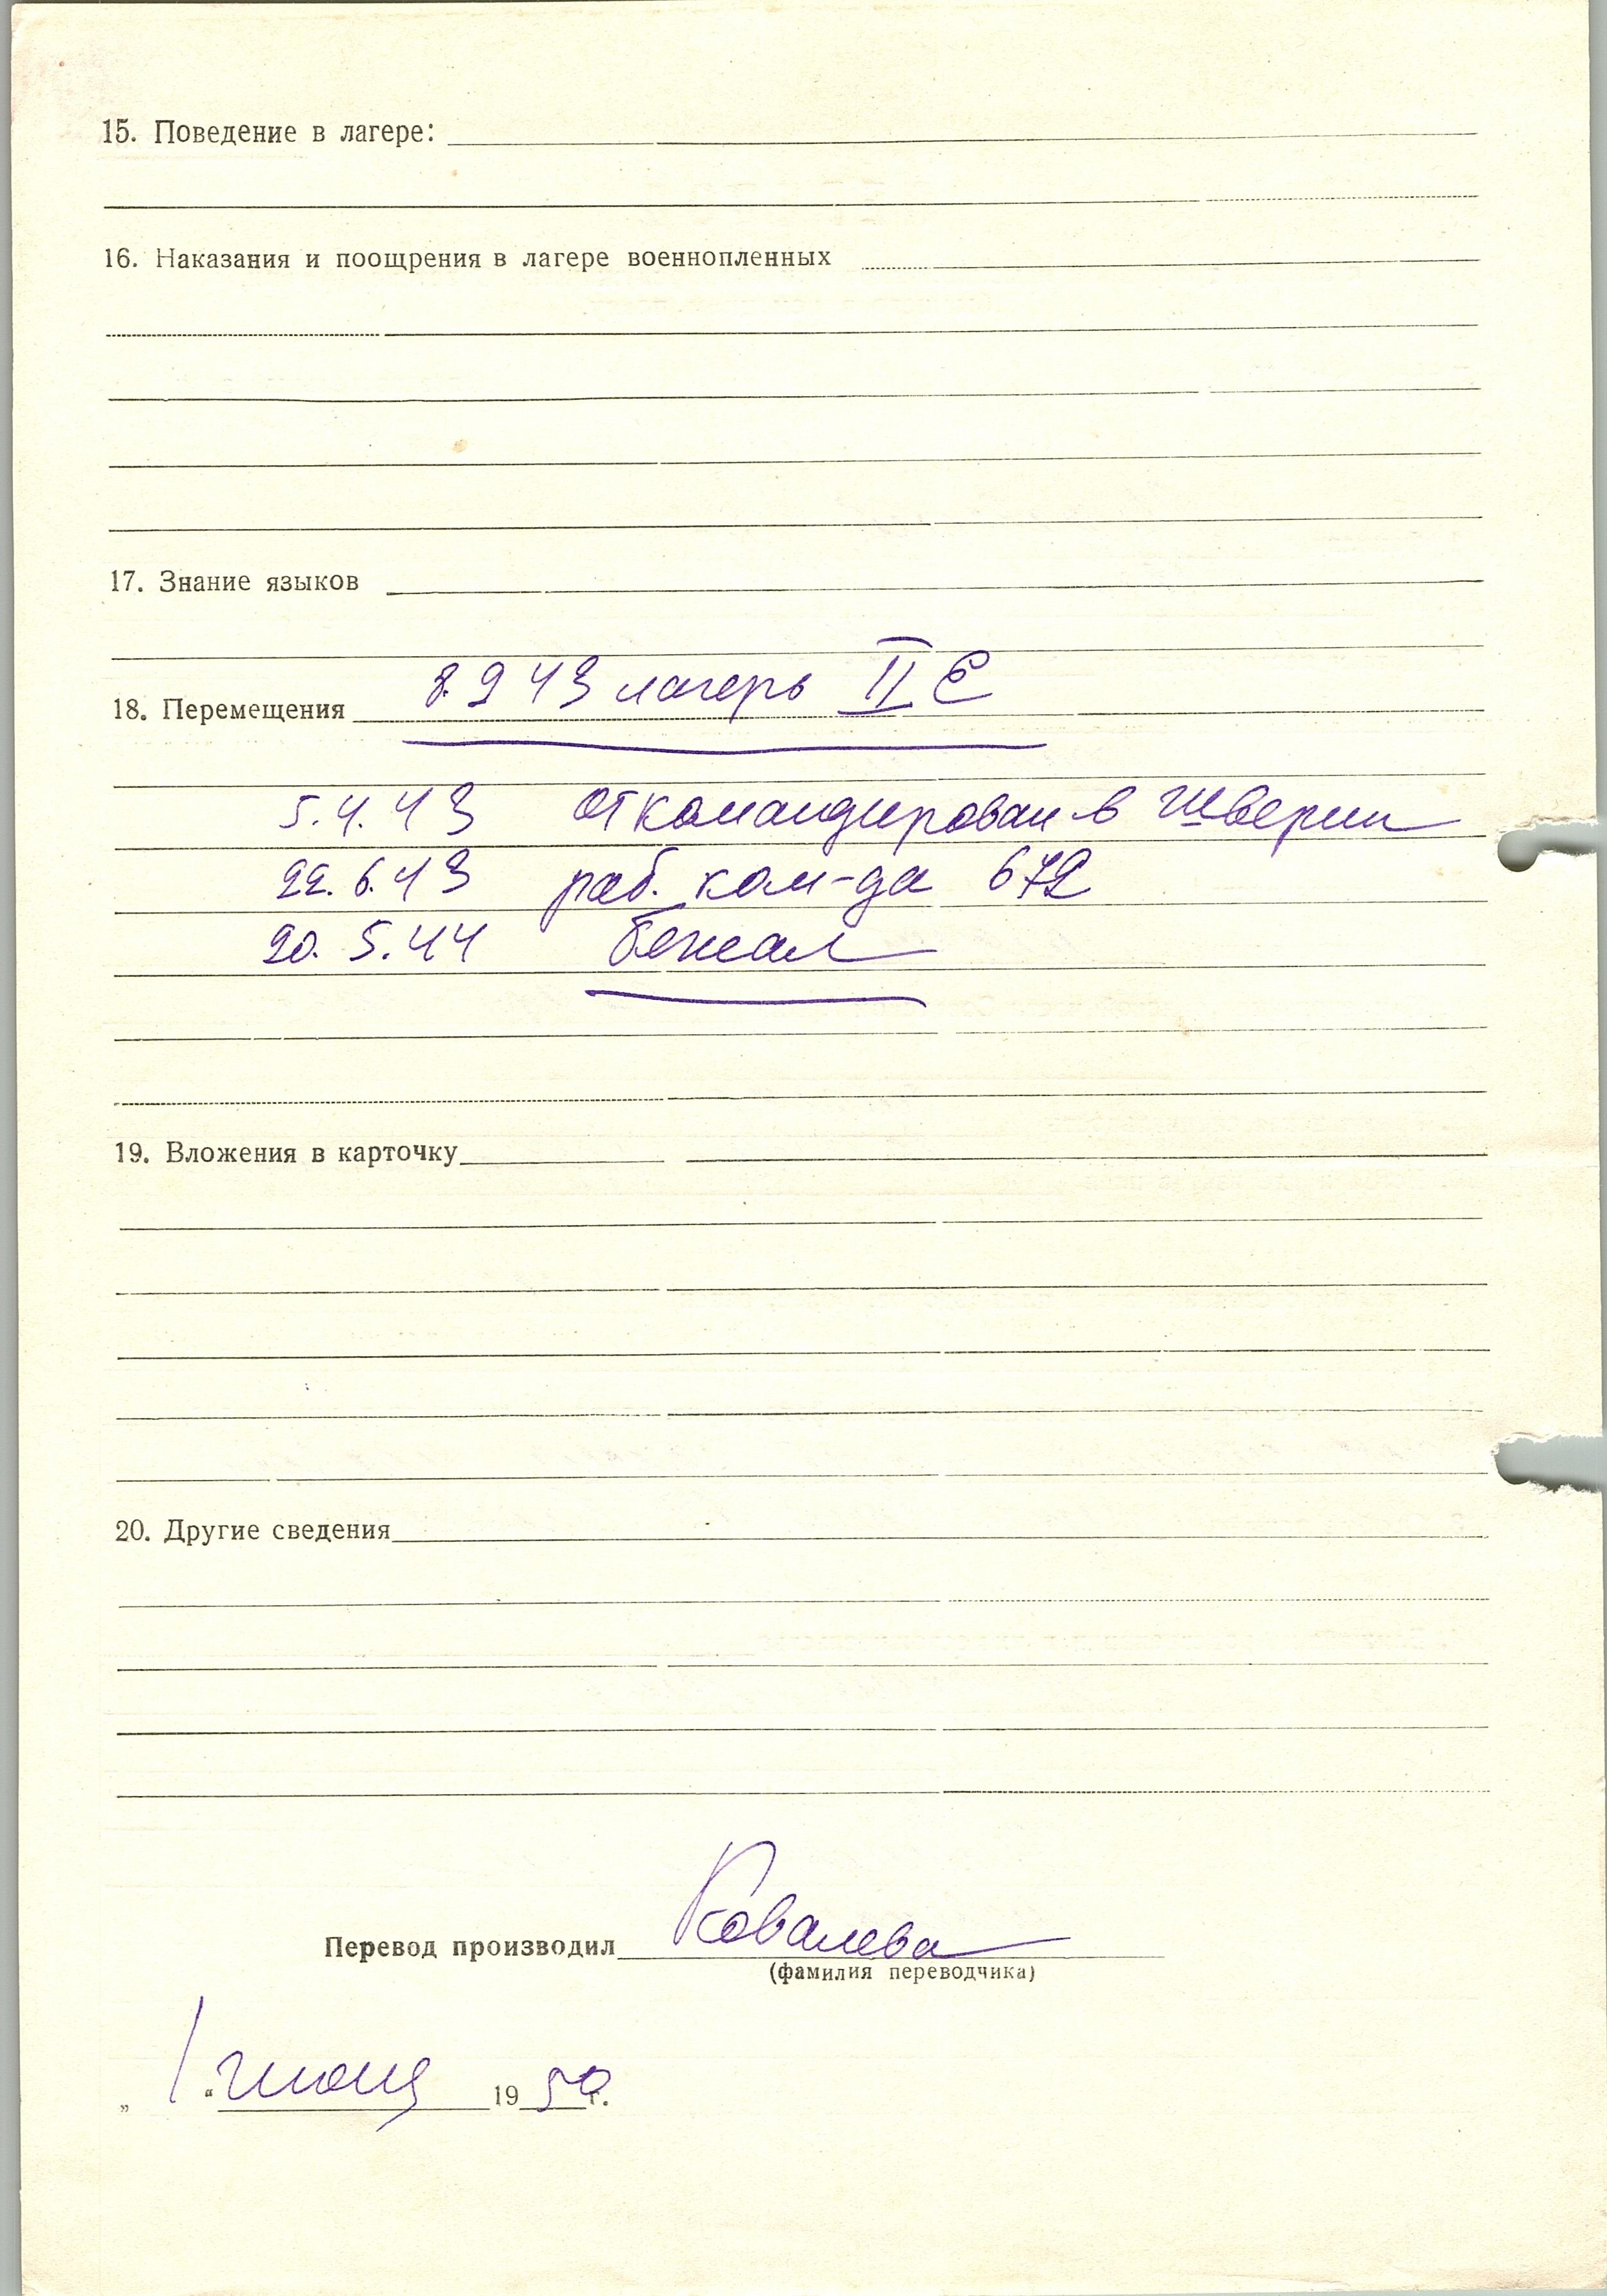 15. Поведение в лагере:
16. Наказания и поощрения в лагере военнопленных
17. Знание языков
18. Перемещения 8.2 43 лагерь II E
5.4.43 откомандирован в Шверин
22.6.43 раб. ком-да 672
20.5.44 бежал
19. Вложения в карточку
20. Другие сведения
Перевод производил Ковалева
(фамилия переводчика)
„ 1 “ июня 1950 г.